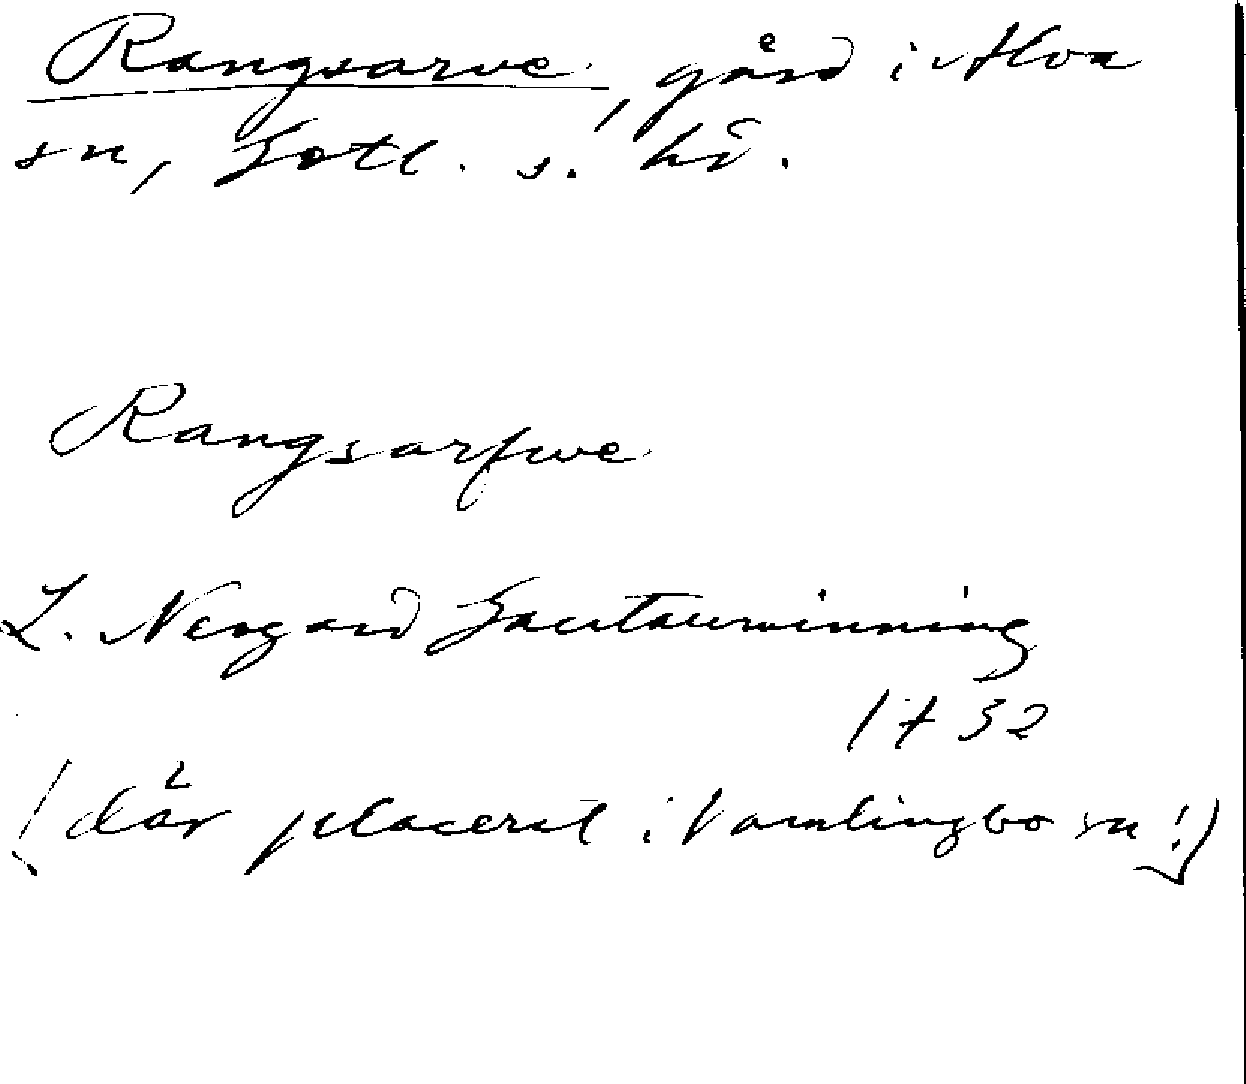 Rangsarve, gård i Alva
sn, Gotl. s. hd.
Rangsarfwe
L. Nergard Gautauminning
1732
(där placerat i Vamlingbo sn!)